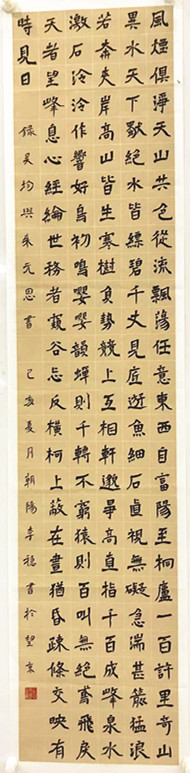 風煙俱淨天山共色從流飄蕩任意東西自富陽至桐廬一百許里奇山
異水天下獨絕水皆縹碧千丈見底遊魚細石直視無礙急湍甚箭猛浪
若奔夾岸高山皆生寒樹負勢競上互相軒邈爭高直指千百成峰泉水
激石泠泠作響好鳥初鳴嚶嚶韻蟬則千轉不窮猿則百叫無絕鳶飛戾
天者望峰息心經綸世務者窺谷忘反橫柯上蔽在晝猶昏疎條交映有
時見日 錄吳均與朱元思書 己亥夏月朝陽李穩書於望京